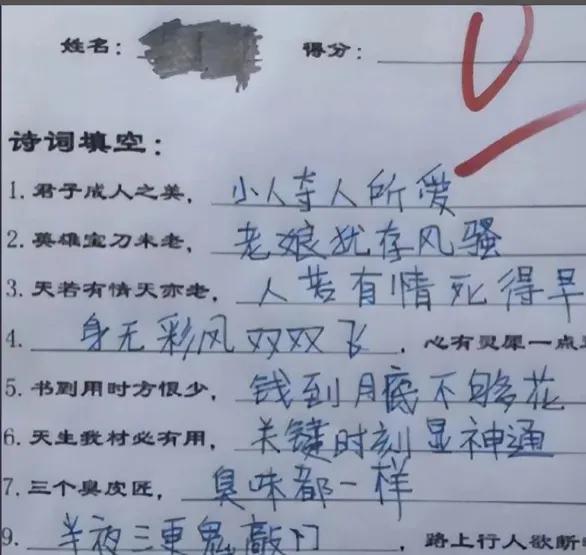 姓名： 得分： 0
诗词填空：
1. 君子成人之美， 小人夺人所爱
2. 英雄宝刀未老， 老娘犹存风骚
3. 天若有情天亦老， 人若有情死得早
4. 身无彩风双双飞 ，心有灵犀一点
5. 书到用时方恨少， 钱到月底不够花
6. 天生我材必有用， 关键时刻显神通
7. 三个臭皮匠， 臭味都一样
9. 半夜三更鬼敲门 ，路上行人欲断